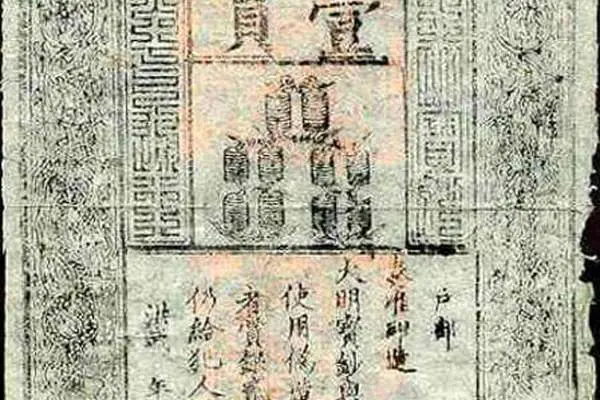 壹貫
戶部
奏准印造
大明寶鈔與
使用偽造
者賞銀貳
仍給犯人
洪武 年